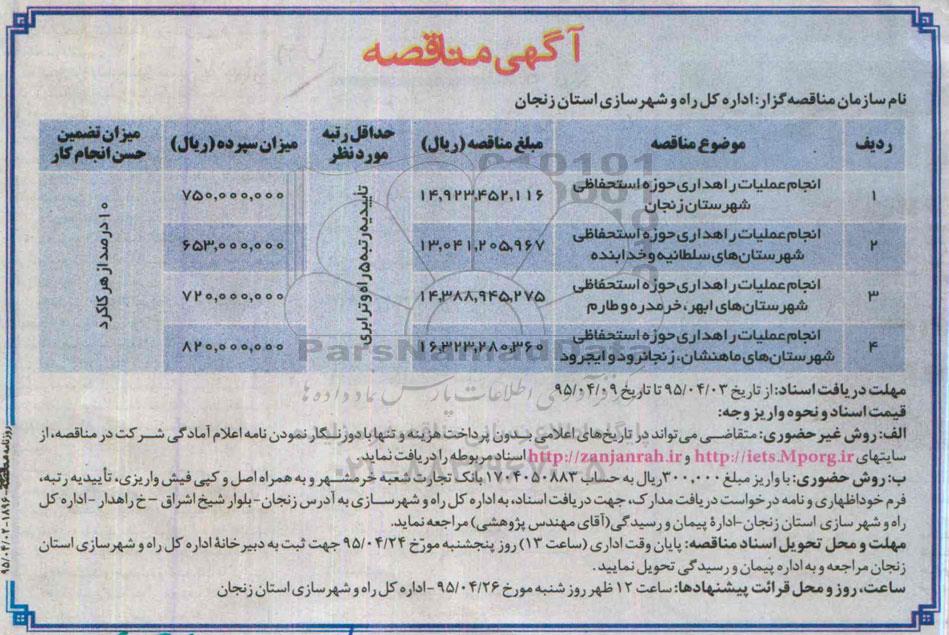 آگهی مناقصه
نام سازمان مناقصه‌گزار: اداره کل راه و شهرسازی استان زنجان
ردیف موضوع مناقصه مبلغ مناقصه (ریال) حداقل رتبه مورد نظر میزان سپرده (ریال) میزان تضمین حسن انجام کار
۱ انجام عملیات راهداری حوزه استحفاظی شهرستان زنجان ۱۴,۹۲۳,۴۵۲,۱۱۶ ۷۵۰,۰۰۰,۰۰۰
۲ انجام عملیات راهداری حوزه استحفاظی شهرستان‌های سلطانیه و خدابنده ۱۳,۰۴۱,۲۰۵,۹۶۷ ۶۵۳,۰۰۰,۰۰۰
۳ انجام عملیات راهداری حوزه استحفاظی شهرستان‌های ابهر، خرمدره و طارم ۱۴,۳۸۸,۹۴۵,۲۷۵ ۷۲۰,۰۰۰,۰۰۰
۴ انجام عملیات راهداری حوزه استحفاظی شهرستان‌های ماهنشان، زنجانرود و ایجرود ۱۶,۳۲۳,۲۸۰,۳۶۰ ۸۲۰,۰۰۰,۰۰۰
تأییدیه رتبه ۵ راه و ترابری
۱۰ درصد از هر کارکرد
مهلت دریافت اسناد: از تاریخ ۹۵/۰۴/۰۳ تا تاریخ ۹۵/۰۴/۰۹
قیمت اسناد و نحوه واریز وجه:
الف: روش غیر حضوری: متقاضی می‌تواند در تاریخ‌های اعلامی بدون پرداخت هزینه و تنها با دورنگار نمودن نامه اعلام آمادگی شرکت در مناقصه، از
سایتهای http://iets.Mporg.ir و http://zanjanrah.ir اسناد مربوطه را دریافت نماید.
ب: روش حضوری: با واریز مبلغ ۳۰۰,۰۰۰ ریال به حساب ۱۷۰۴۰۵۰۸۸۳ بانک تجارت شعبه خرمشهر و به همراه اصل و کپی فیش واریزی، تأییدیه رتبه،
فرم خوداظهاری و نامه درخواست دریافت مدارک، جهت دریافت اسناد، به اداره کل راه و شهرسازی به آدرس زنجان-بلوار شیخ اشراق - خ راهدار - اداره کل
راه و شهر سازی استان زنجان-ادارهٔ پیمان و رسیدگی (آقای مهندس پژوهشی) مراجعه نماید.
مهلت و محل تحویل اسناد مناقصه: پایان وقت اداری (ساعت ۱۳) روز پنجشنبه مورّخ ۹۵/۰۴/۲۴ جهت ثبت به دبیرخانهٔ اداره کل راه و شهرسازی استان
زنجان مراجعه و به اداره پیمان و رسیدگی تحویل نمایید.
ساعت، روز و محل قرائت پیشنهادها: ساعت ۱۲ ظهر روز شنبه مورخ ۹۵/۰۴/۲۶ -اداره کل راه و شهرسازی استان زنجان
ParsNamadData
۰۲۱-۸۸۳۴۹۶۷۰-۵
روزنامه مناقصه ۱۸۹۶ - ۹۵/۰۴/۰۲